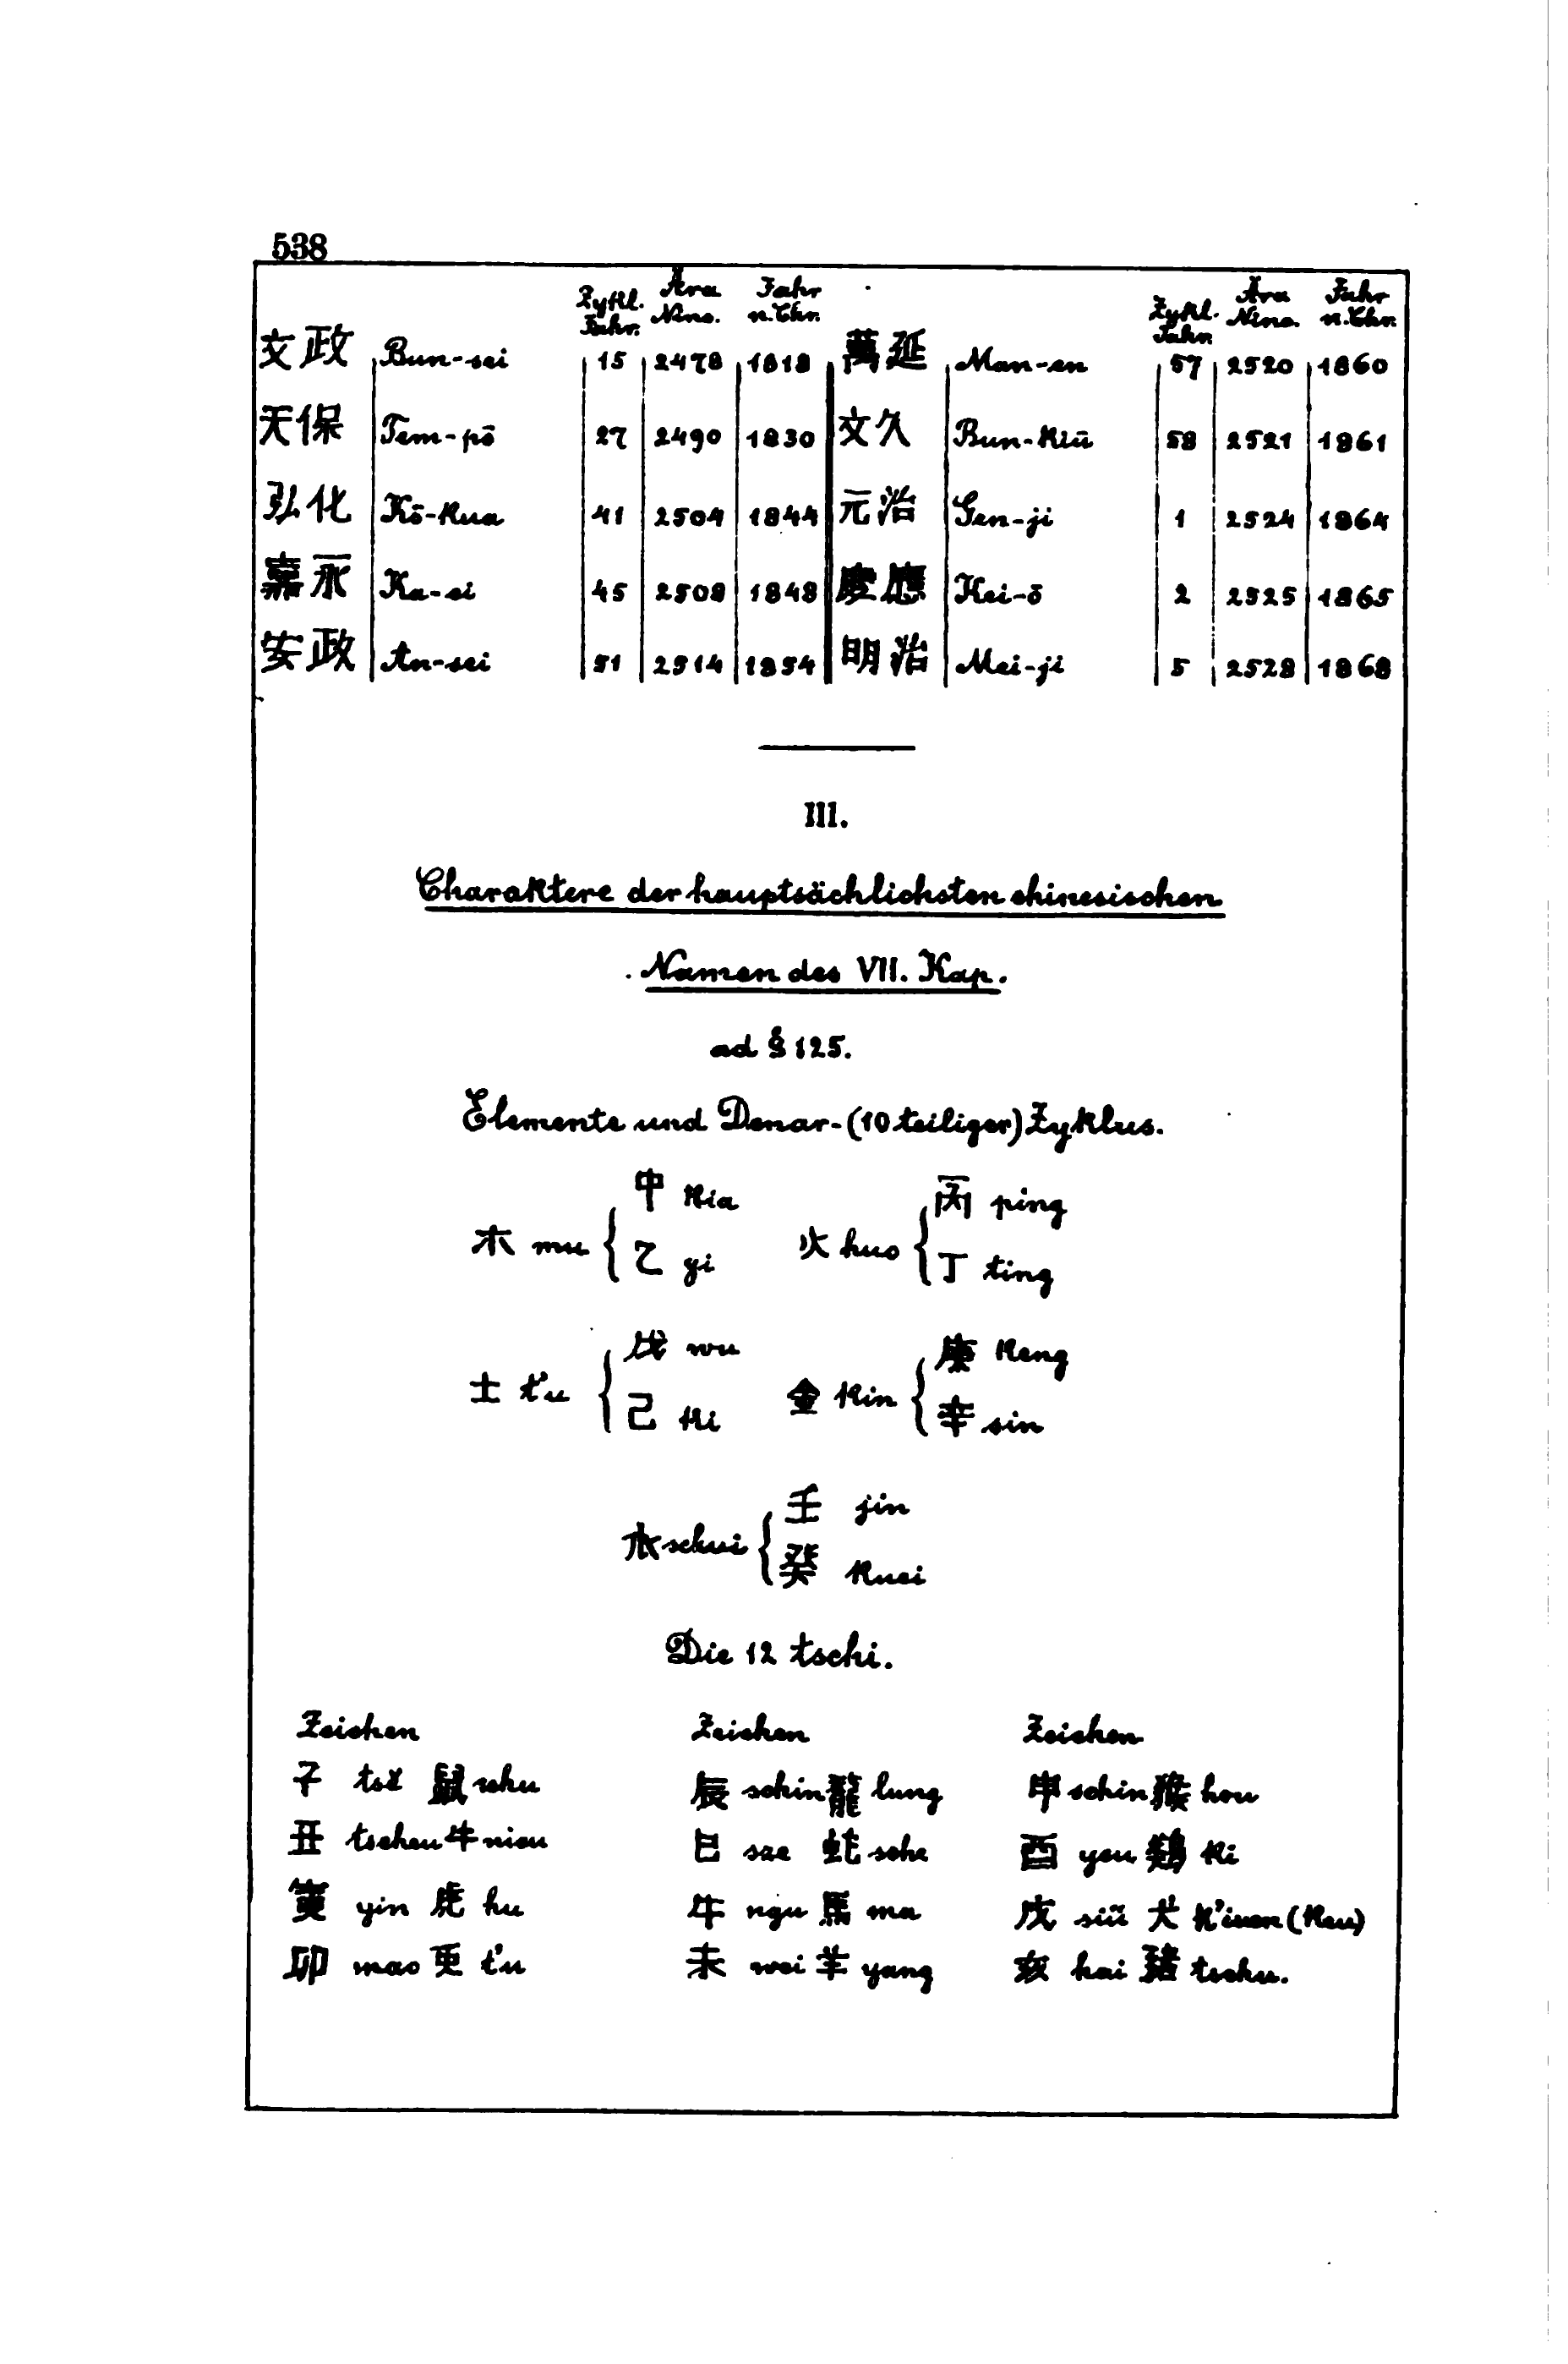 538
Zykl. Jahr. Ära Nino. Jahr n. Chr. Zykl. Jahr. Ära Nino. Jahr n. Chr.
文政 Bun-sei 15 2478 1818 萬延 Man-en 57 2520 1860
天保 Tem-pō 27 2490 1830 文久 Bun-kiū 58 2521 1861
弘化 Kō-kua 41 2504 1844 元治 Gen-ji 1 2524 1864
嘉永 Ka-ei 45 2508 1848 慶應 Kei-ō 2 2525 1865
安政 An-sei 51 2514 1854 明治 Mei-ji 5 2528 1868
III.
Charaktere der hauptsächlichsten chinesischen
Namen des VII. Kap.
ad § 125.
Elemente und Denar-(10 teiliger) Zyklus.
木 mu { 甲 kia 乙 yi 火 huo { 丙 ping 丁 ting
土 t'u { 戊 wu 己 ki 金 kin { 庚 keng 辛 sin
水 schui { 壬 jin 癸 kuei
Die 12 tschi.
Zeichen Zeichen Zeichen
子 tsĕ 鼠 schu 辰 schin 龍 lung 申 schin 猴 hou
丑 tscheu 牛 nieu 巳 sze 蛇 sche 酉 yeu 鷄 ki
寅 yin 虎 hu 午 ngu 馬 ma 戌 siü 犬 k'iuen (keu)
卯 mao 兎 t'u 未 wei 羊 yang 亥 hai 豬 tschu.